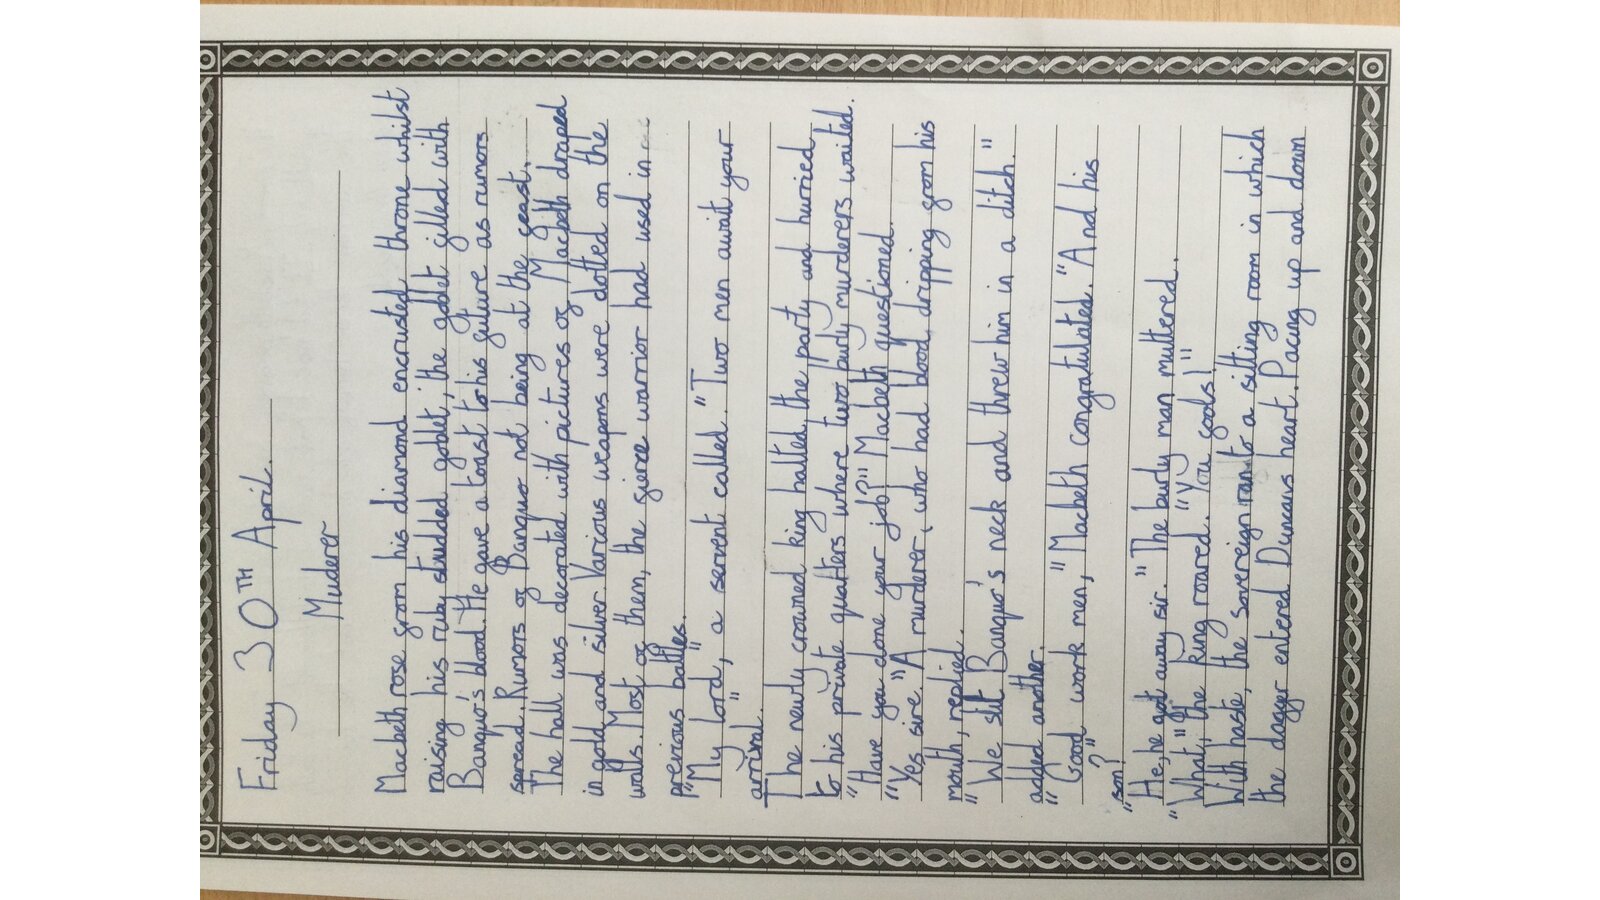 Friday 30TH April.
Muderer
Macbeth rose from his diamond encrusted throne whilst
raising his ruby studded goblet; the goblet filled with
Banquo's blood. He gave a toast to his future as rumors
spread. Rumors of Banquo not being at the feast.
The hall was decorated with pictures of Macbeth draped
in gold and silver. Various weapons were dotted on the
walls. Most of them, the fierce warrior had used in
previous battles.
"My lord," a servent called. "Two men await your
arrival."
The newly crowned king halted the party and hurried
to his private quatters where two burly murderers waited.
"Have you done your job?" Macbeth questioned.
"Yes sire." A murderer, who had blood dripping from his
mouth, replied.
"We slit Banquo's neck and threw him in a ditch."
added another.
"Good work men," Macbeth congratulated. "And his
son?"
"He, he got away sir." The burly man muttered.
"What," the king roared. "You fools!"
With haste, the sovereign ran to a sitting room in which
the dagger entered Duncans heart. Pacing up and down